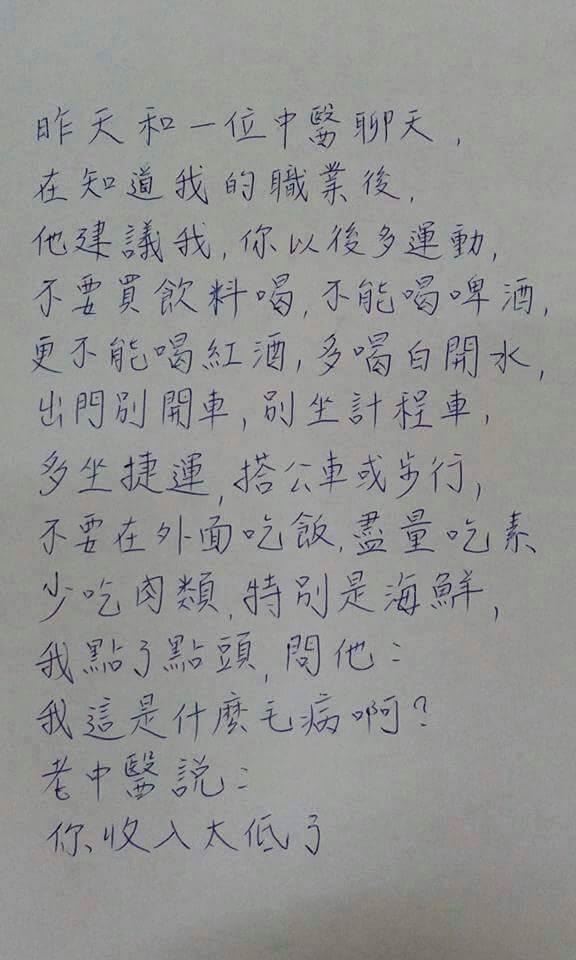 昨天和一位中醫聊天,
在知道我的職業後,
他建議我,你以後多運動,
不要買飲料喝,不能喝啤酒,
更不能喝紅酒,多喝白開水,
出門別開車,別坐計程車,
多坐捷運,搭公車或步行,
不要在外面吃飯,盡量吃素
少吃肉類,特別是海鮮,
我點了點頭,問他:
我這是什麼毛病啊?
老中醫說:
你收入太低了